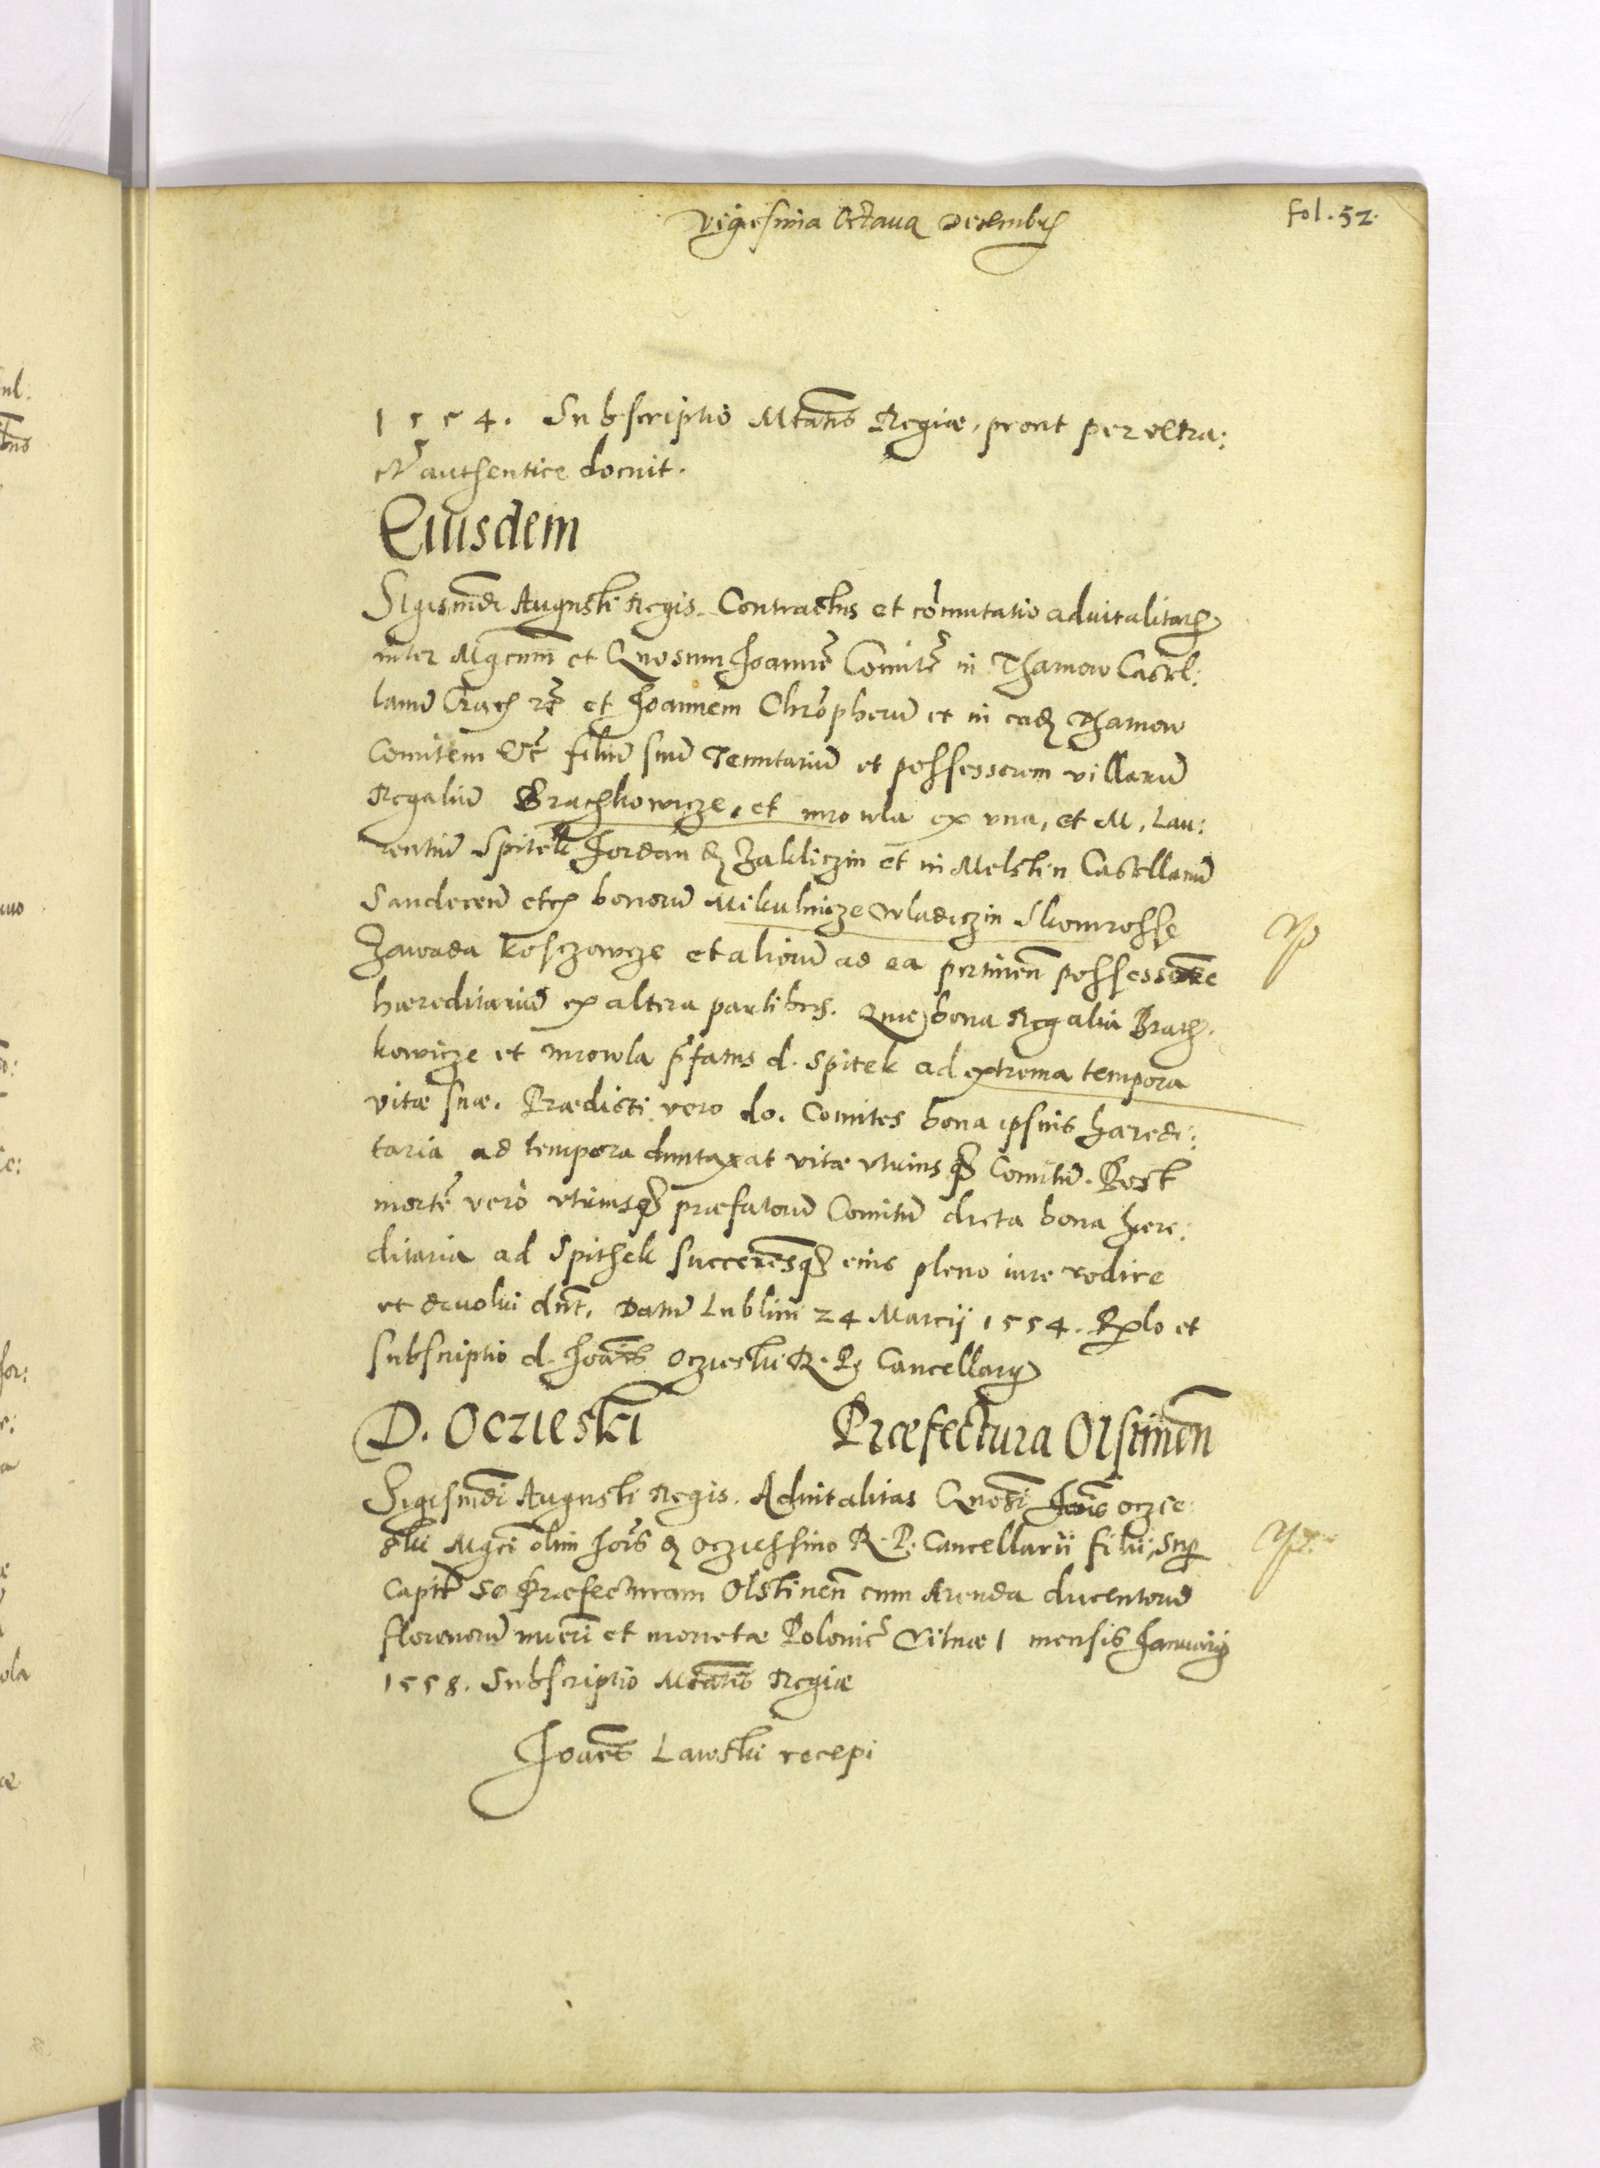 Vigesima Octaua Decembris
fol. 52.
1554. Subscriptio Mtatis Regiæ, prout per extra:
ctū authentice docuit.
Eiusdem
Sigismdi Augusti Regis. Contractus et cōmutatio aduitalitatis
inter Mgcum et Gnosum Joannē Comitē in Tharnow Castel:
lanū Crach etc et Joannem Chrōpherū et in eadē Tharnow
Comitem etc filiū suū Tenutariū et possessorem villarū
Regaliū Brachkowicze, et Mrowla ex vna, et M. Lau:
rentiū Spitek Jordan de Zakliczin et in Melstin Castellanū
Sandeceñ etc bonorū Mikulincze Wladiczin Skomrosse
Zawada Kosczowcze et aliorū ad ea pertineñ possessorē
hæreditariū ex altera partibus. Quæ bona Regalia Brach:
kowicze et Mrowla pfatus d. Spitek ad extrema tempora
vitæ suæ. Prædicti vero do. Comites bona ipsius hæredi:
taria ad tempora duntaxat vitæ vtriusq Comitū. Post
mortē vero vtriusq præfatorū Comitū dicta bona here:
ditaria ad Spithek succeresq eius pleno iure redire
et deuolui dñt. Datū Lublini 24 Marcij 1554. Rlo et
subscriptio d. Joānis Oczieski R. P. Cancellarij
D. Oczieski Præfectura Olstineñ
Sigismdi Augusti Regis. Aduitalitas Gnosi Joānis Oczie:
ski Mgci olim Joīs de Ocziessino R. P. Cancellarii filii, Sup
Capit seu Præfecturam Olstineñ cum Arenda ducentorū
florenorū nūeri et monetæ Polonicē Vilnæ 1 mensis Januarij
1558. Subscriptio Mtatis Regiæ
Joānes Lawski recepi